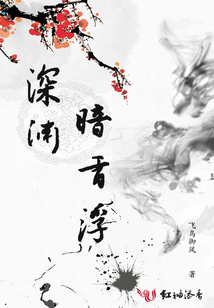 深渊
暗香浮
飞鸟御风
著
红袖添香